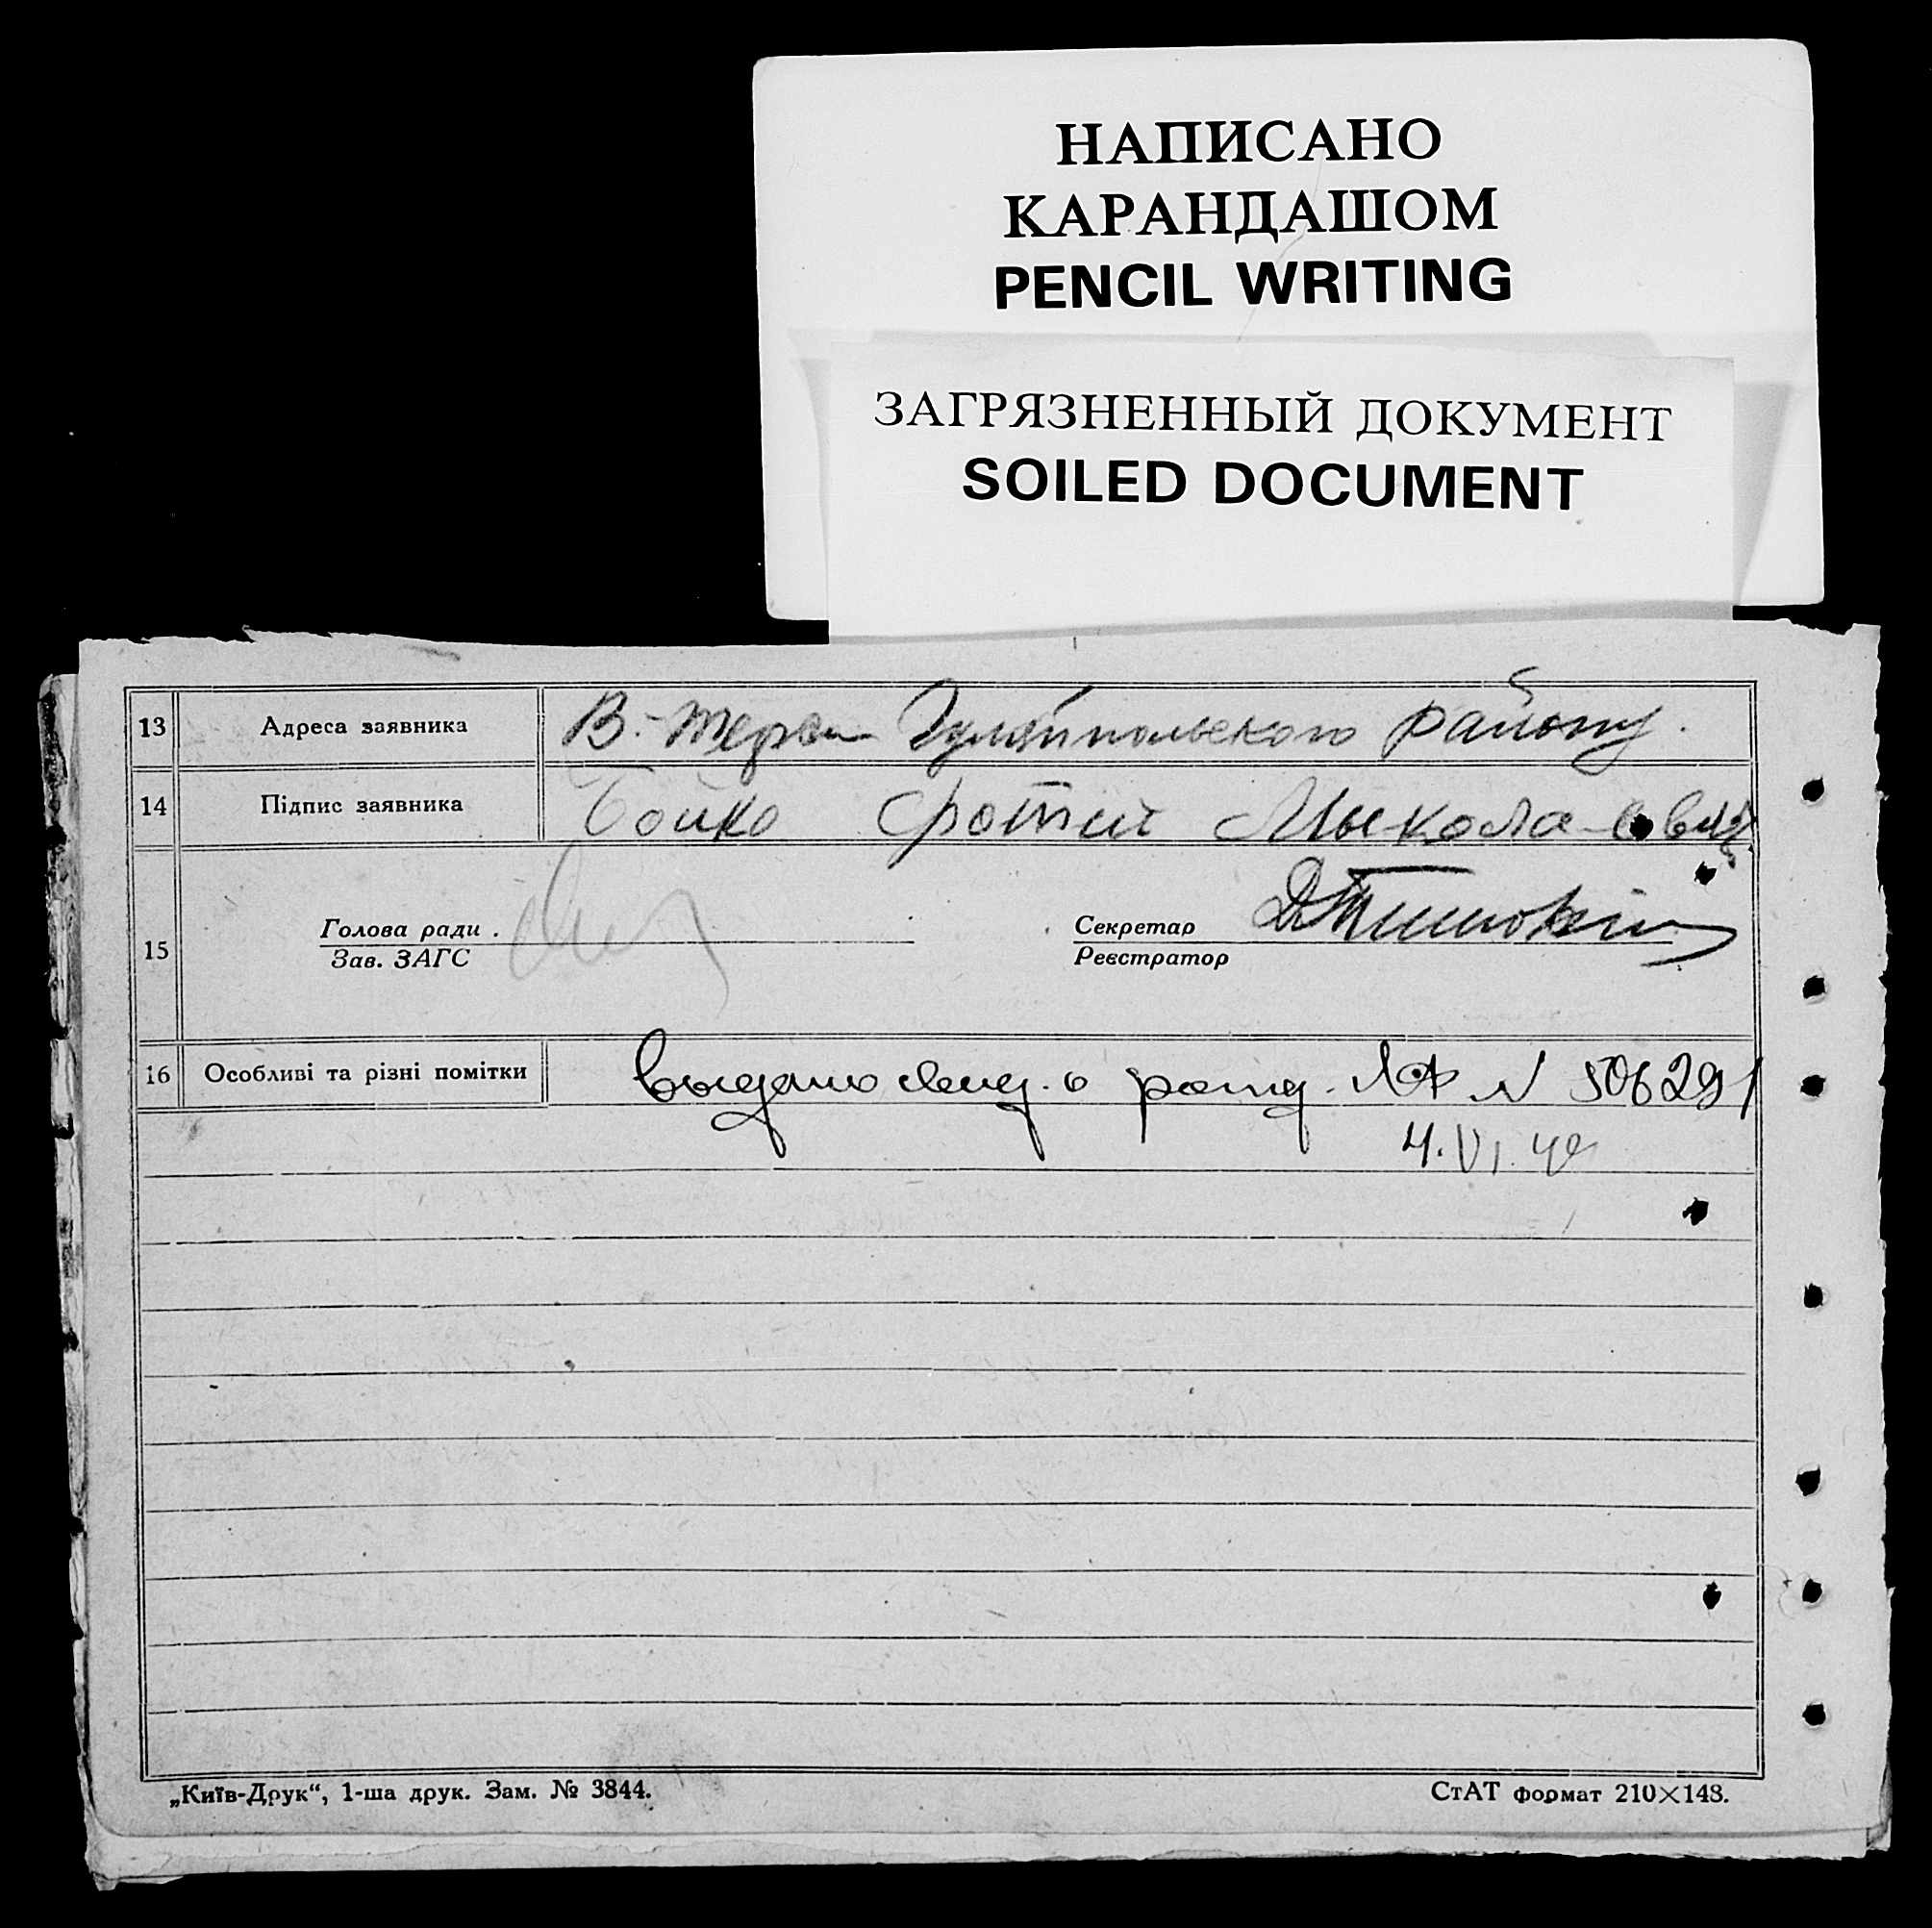 НАПИСАНО
КАРАНДАШОМ
PENCIL WRITING
ЗАГРЯЗНЕННЫЙ ДОКУМЕНТ
SOILED DOCUMENT
13 Адреса заявника В.-Терса Гуляйпольского району.
14 Підпис заявника Бойко Фотий Мыкола
15 Голова ради. Секретар
Зав. ЗАГС Реєстратор
16 Особливі та різні помітки выдано свид. о рожд. ЛФ N 506291
4.VI.
„Київ-Друк“, 1-ша друк. Зам. № 3844. СтАТ формат 210×148.